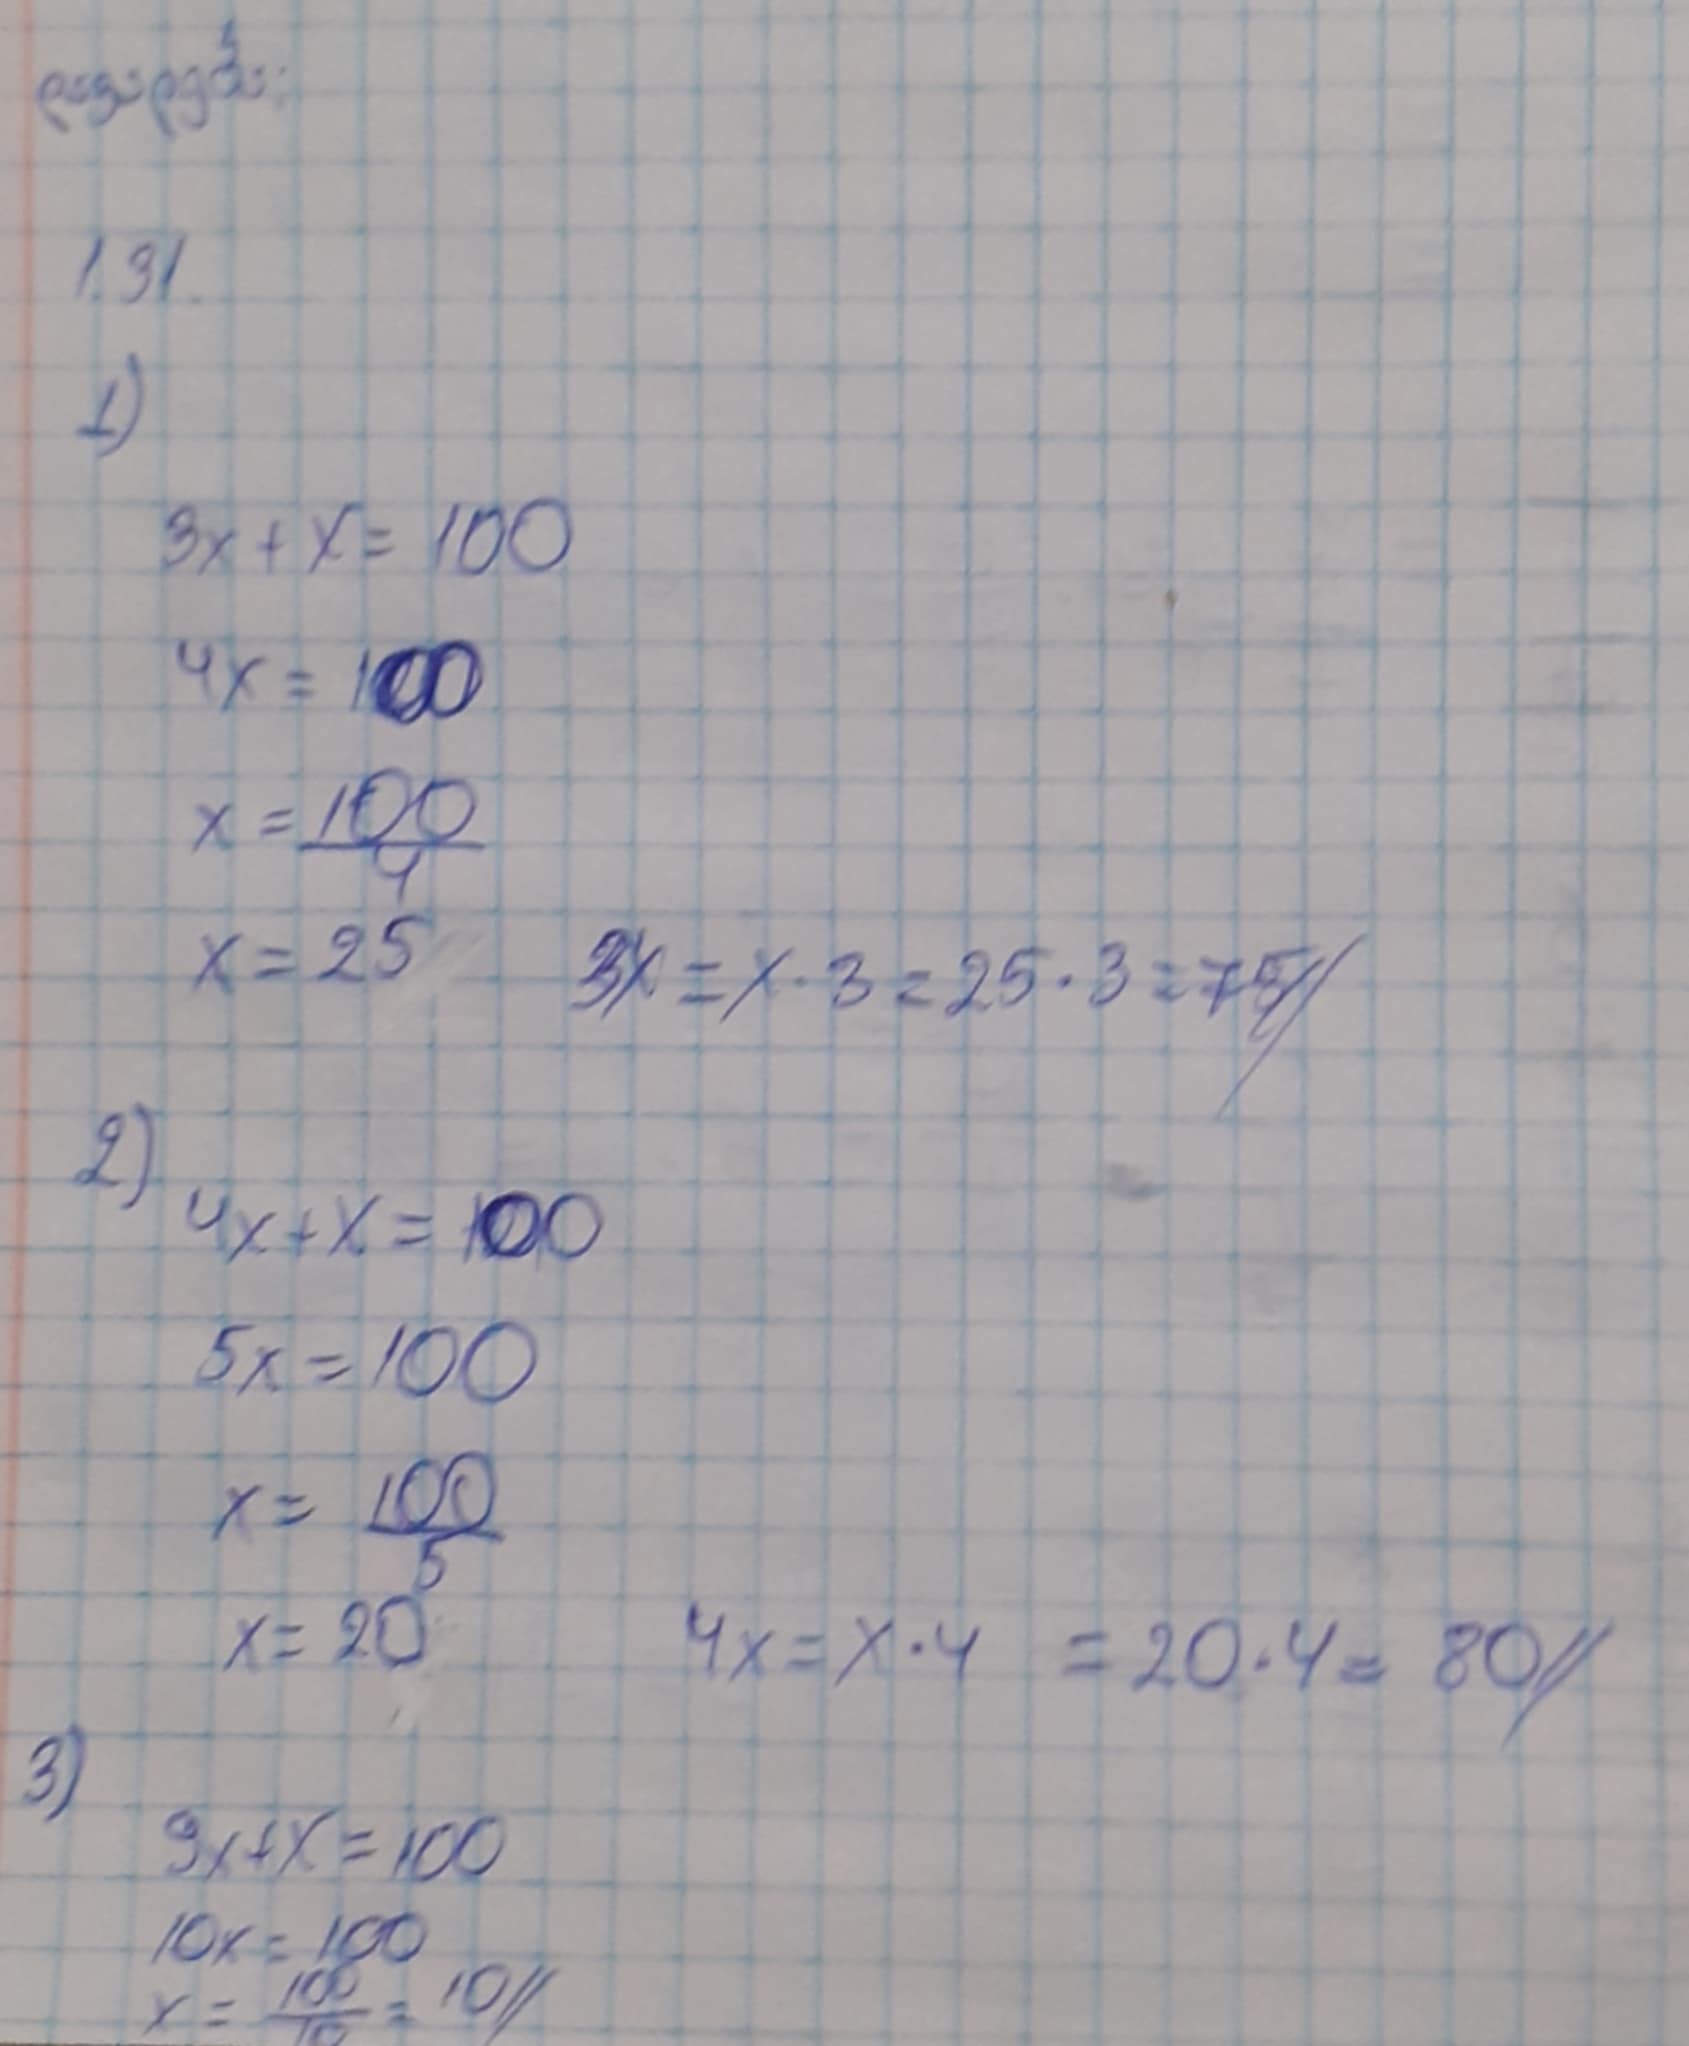 1.31.
1)
3x + x = 100
4x = 100
x = 100/4
x = 25 3x = x · 3 = 25 · 3 = 75//
2)
4x + x = 100
5x = 100
x = 100/5
x = 20 4x = x · 4 = 20 · 4 = 80//
3)
9x + x = 100
10x = 100
x = 100/10 = 10//